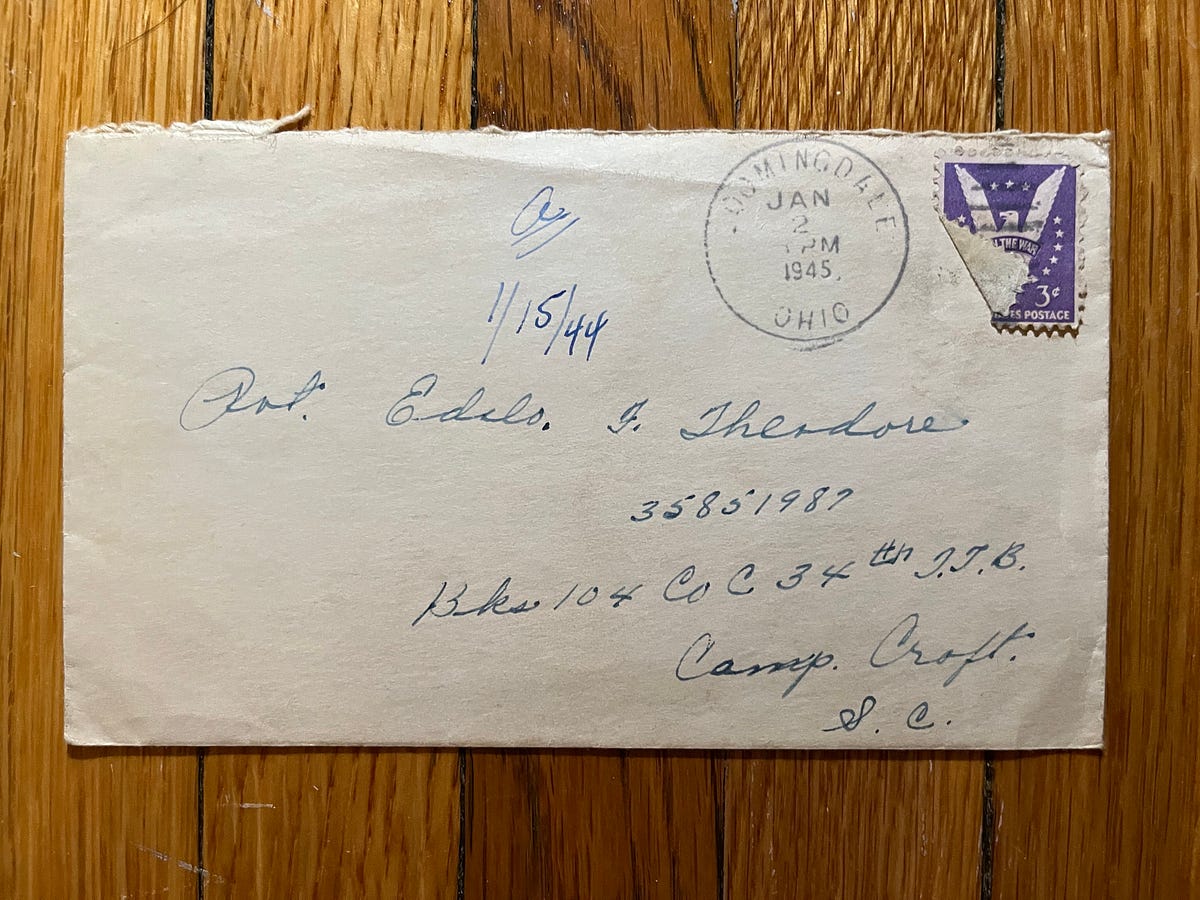 OOMINGDALE
JAN
2
PM
1945
OHIO
N THE WAR
3¢
ES POSTAGE
a
1/15/44
Pvt. Edilo. F. Theodore
35851987
Bks 104 Co C 34th I.T.B.
Camp. Croft.
S. C.